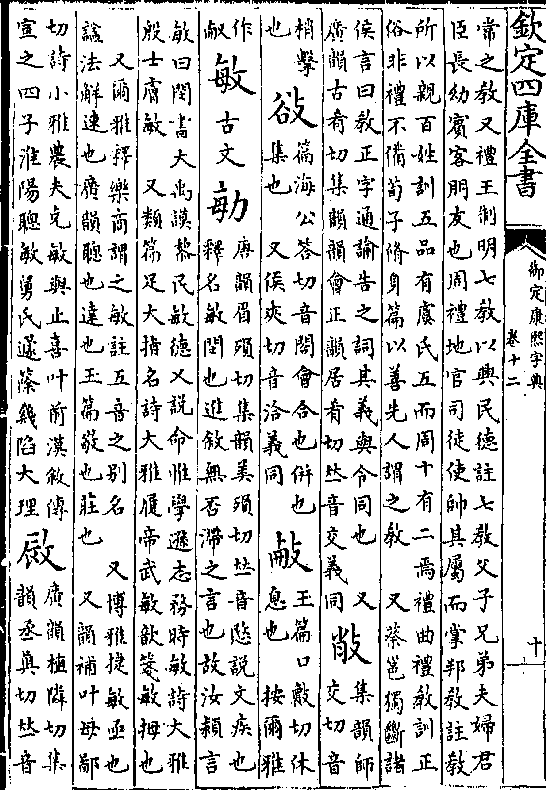 欽定四庫全書
御定康熙字典
卷十二
十
常之教又禮王制明七教以興民德註七教父子兄弟夫婦君
臣長幼賓客朋友也周禮地官司徒使帥其屬而掌邦教註教
所以親百姓訓五品有虞氏五而周十有二焉禮曲禮教訓正
俗非禮不備荀子脩身篇以善先人謂之教 又蔡邕獨斷諸
侯言曰教正字通諭告之詞其義與令同也 又集韻師
廣韻古肴切集韻韻會正韻居肴切𠀤音交義同 敿 交切音
梢擊
也 敆 篇海公答切音閤會合也併也
集也 又侯夾切音洽義同 㪉 玉篇口敢切休
息也 按爾雅
作
㪉 敏 古文 勄 唐韻眉殞切集韻美殞切𠀤音愍說文疾也
釋名敏閔也進敘無否滯之言也故汝潁言
敏曰閔書大禹謨黎民敏德又說命惟學遜志務時敏詩大雅
殷士膚敏 又類篇足大指名詩大雅履帝武敏歆箋敏拇也
又爾雅釋樂商謂之敏註五音之別名 又博雅捷敏亟也
諡法解速也廣韻聰也達也玉篇敬也莊也 又韻補叶母鄙
切詩小雅農夫克敏與止喜叶前漢敘傳
宣之四子淮陽聰敏舅氏蘧蒢幾陷大理 敐 廣韻植鄰切集
韻丞眞切𠀤音